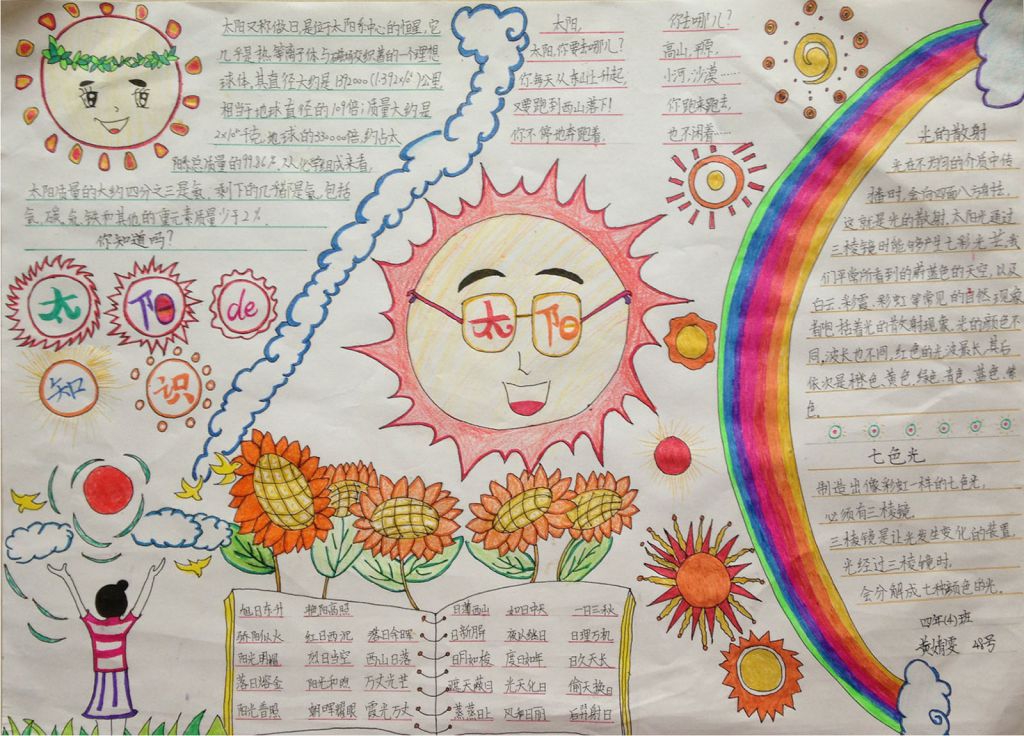 太阳又称做日是位于太阳系中心的恒星,它
几乎是热等离子体与磁场交织着的一个理想
球体,其直径大约是1392000(1.392×10⁶)公里
相当于地球直径的109倍;质量大约是
千克,地球的330000倍,约占太
阳系总质量的99.86%,
太阳质量的大约四分之三是氢,剩下的几乎都是氦,包括
氧、碳、氖、铁和其他的重元素质量少于2%
你知道吗?
太阳,
太阳,你要去哪儿?
你每天从东山上升起,
又要跑到西山落下!
你不停地奔跑着,
你去哪儿?
高山,平原,
小河,沙漠……
你跑来跑去,
也不闲着……
太阳de
知识
太阳
光的散射
光在不均匀的介质中传
播时,会向四面八方
这就是光的散射.太阳光通过
三棱镜时能够产生七彩光芒,我
们平常所看到的蔚蓝色的天空,以及
白云、彩霞、彩虹等常见的自然现象
着光的散射现象,光的颜色不
同,波长也不同,红色的光波最长,其后
依次是橙色、黄色、绿色、青色、蓝色、紫
色.
七色光
制造出像彩虹一样的七色光,
必须有三棱镜.
三棱镜是让光发生变化的装置.
光经过三棱镜时,
会分解成七种颜色的光.
四年(4)班
黄婧雯 48号
旭日东升 艳阳高照
骄阳似火 红日西沉 落日余晖
阳光明媚 烈日当空 西山日落
落日溶金 阳光和煦 万丈光芒
阳光普照 朝晖耀眼 霞光万丈
日薄西山 如日中天 一日三秋
日新月异 夜以继日 日理万机
日月如梭 度日如年 日久天长
遮天蔽日 光天化日 偷天换日
蒸蒸日上 风和日丽 后羿射日